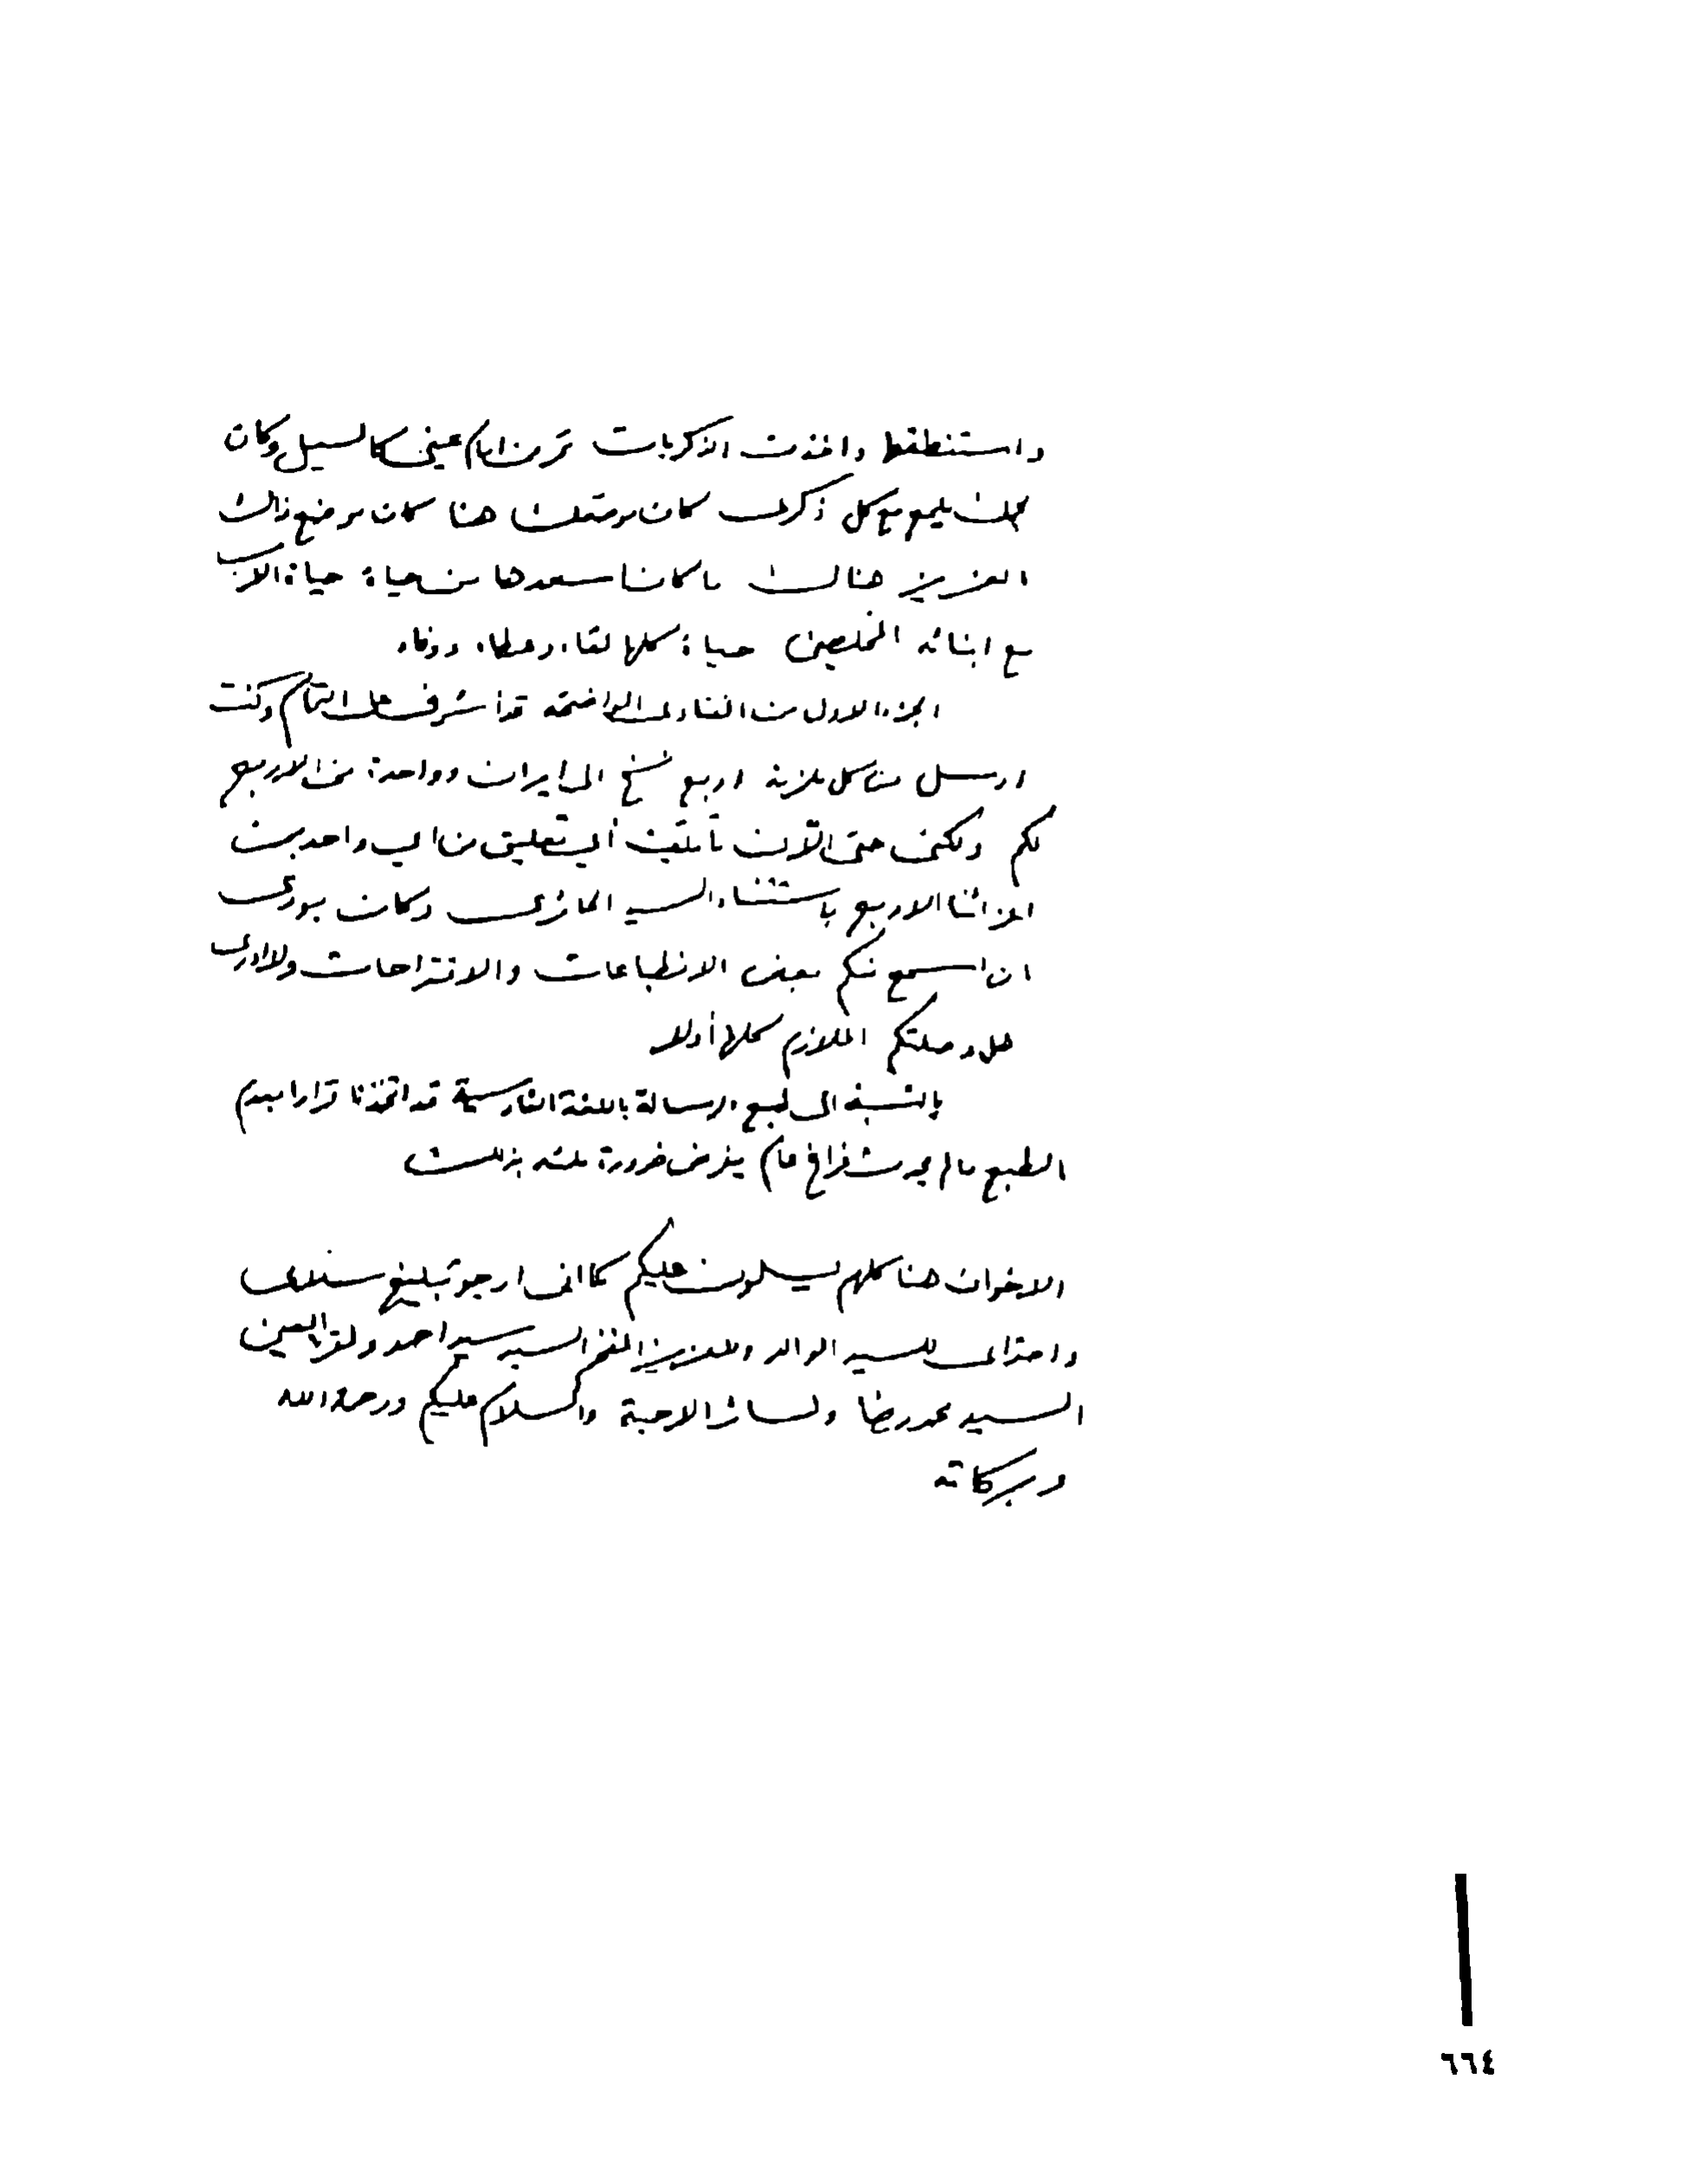 واستنطقها واخذت الذكريات تمر من امام عيني كالسيل وكان
محلك يلمع مع كل ذكرى كان موقعك هنا كان موضع ذلك
العزيز هناك ما كان اسعدها من حياة حياة الاب
مع ابنائه المخلصين حياة كلها لقاء وعطاء ووفاء
الجزء الاول من الفتاوى الواضحة قد اشرف على التمام وكنت
ارسل من كل ملزمة اربع نسخ الى ايران وواحدة من الاربع
لكم ولكني حتى الآن ما تلقيت أي تعليق من اي واحد من
اعزائنا الاربع باستثناء السيد الحائري وكان بودي
ان اسمع منكم بعض الانطباعات والاقتراحات ولا ادري
هل وصلتكم الملازم كلها أولا
بالنسبة الى طبع الرسالة باللغة الفارسية قد اتخذنا قرارا بعدم
الطبع ما لم يحدث فراغ عام يفرض ضرورة ملحة بذلك
الاخوان هنا كلهم يسلمون عليكم كما اني ارجو تبليغ سلامي
واحترامي للسيد الوالد وللعزيز المفخم السيد سيد احمد ولقرة العين
السيد محمد رضا ولسائر الاحبة والسلام عليكم ورحمة الله
وبركاته
٦٦٤